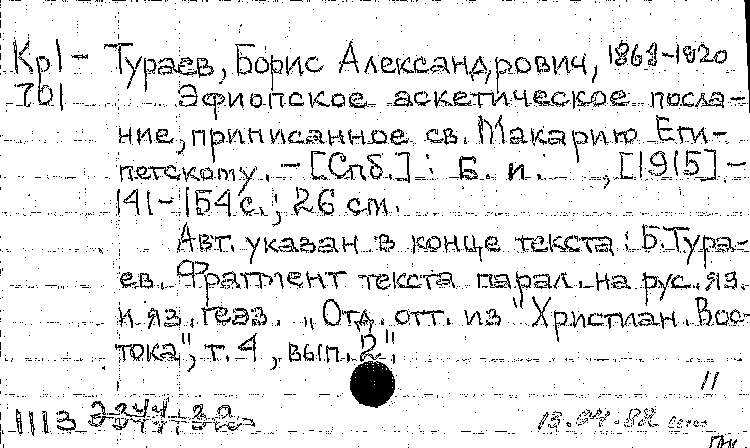 Кр1- Тураев, Борис Александрович, 1868-1920
701 Эфиопское аскетическое посла-
ние, приписанное св. Макарию Еги-
петскому. – [Спб.] : Б. и. , [1915] –
141-154 с.; 26 см.
Авт. указан в конце текста: Б.Тура-
ев. Фрагмент текста парал. на рус. яз.
и яз. геэз. „Отд. отт. из "Христиан. Вос-
тока", т. 4, вып. 2".
11
1113
13.04.82